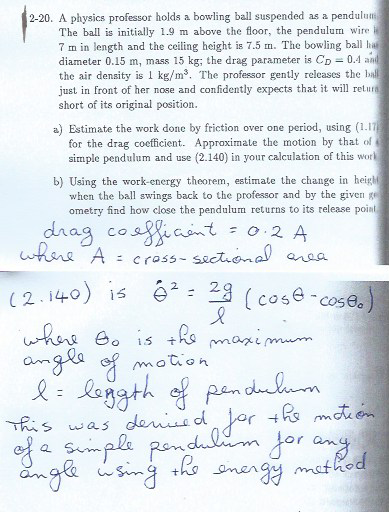 2-20. A physics professor holds a bowling ball suspended as a pendulum.
The ball is initially 1.9 m above the floor, the pendulum wire is
7 m in length and the ceiling height is 7.5 m. The bowling ball has
diameter 0.15 m, mass 15 kg; the drag parameter is C_D = 0.4 and
the air density is 1 kg/m³. The professor gently releases the ball
just in front of her nose and confidently expects that it will return
short of its original position.
a) Estimate the work done by friction over one period, using (1.17)
for the drag coefficient. Approximate the motion by that of a
simple pendulum and use (2.140) in your calculation of this work
b) Using the work-energy theorem, estimate the change in height
when the ball swings back to the professor and by the given ge
ometry find how close the pendulum returns to its release point
drag coefficient = 0.2 A
where A = cross-sectional area
(2.140) is θ̇² = 2g/l (cosθ - cosθ₀)
where θ₀ is the maximum
angle of motion
l = length of pendulum
This was derived for the motion
of a simple pendulum for any
angle using the energy method